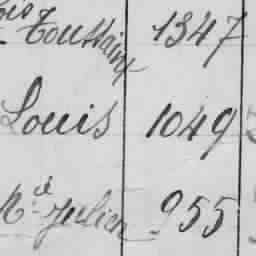 Toussaint 1347
Louis 1049
Julien 955